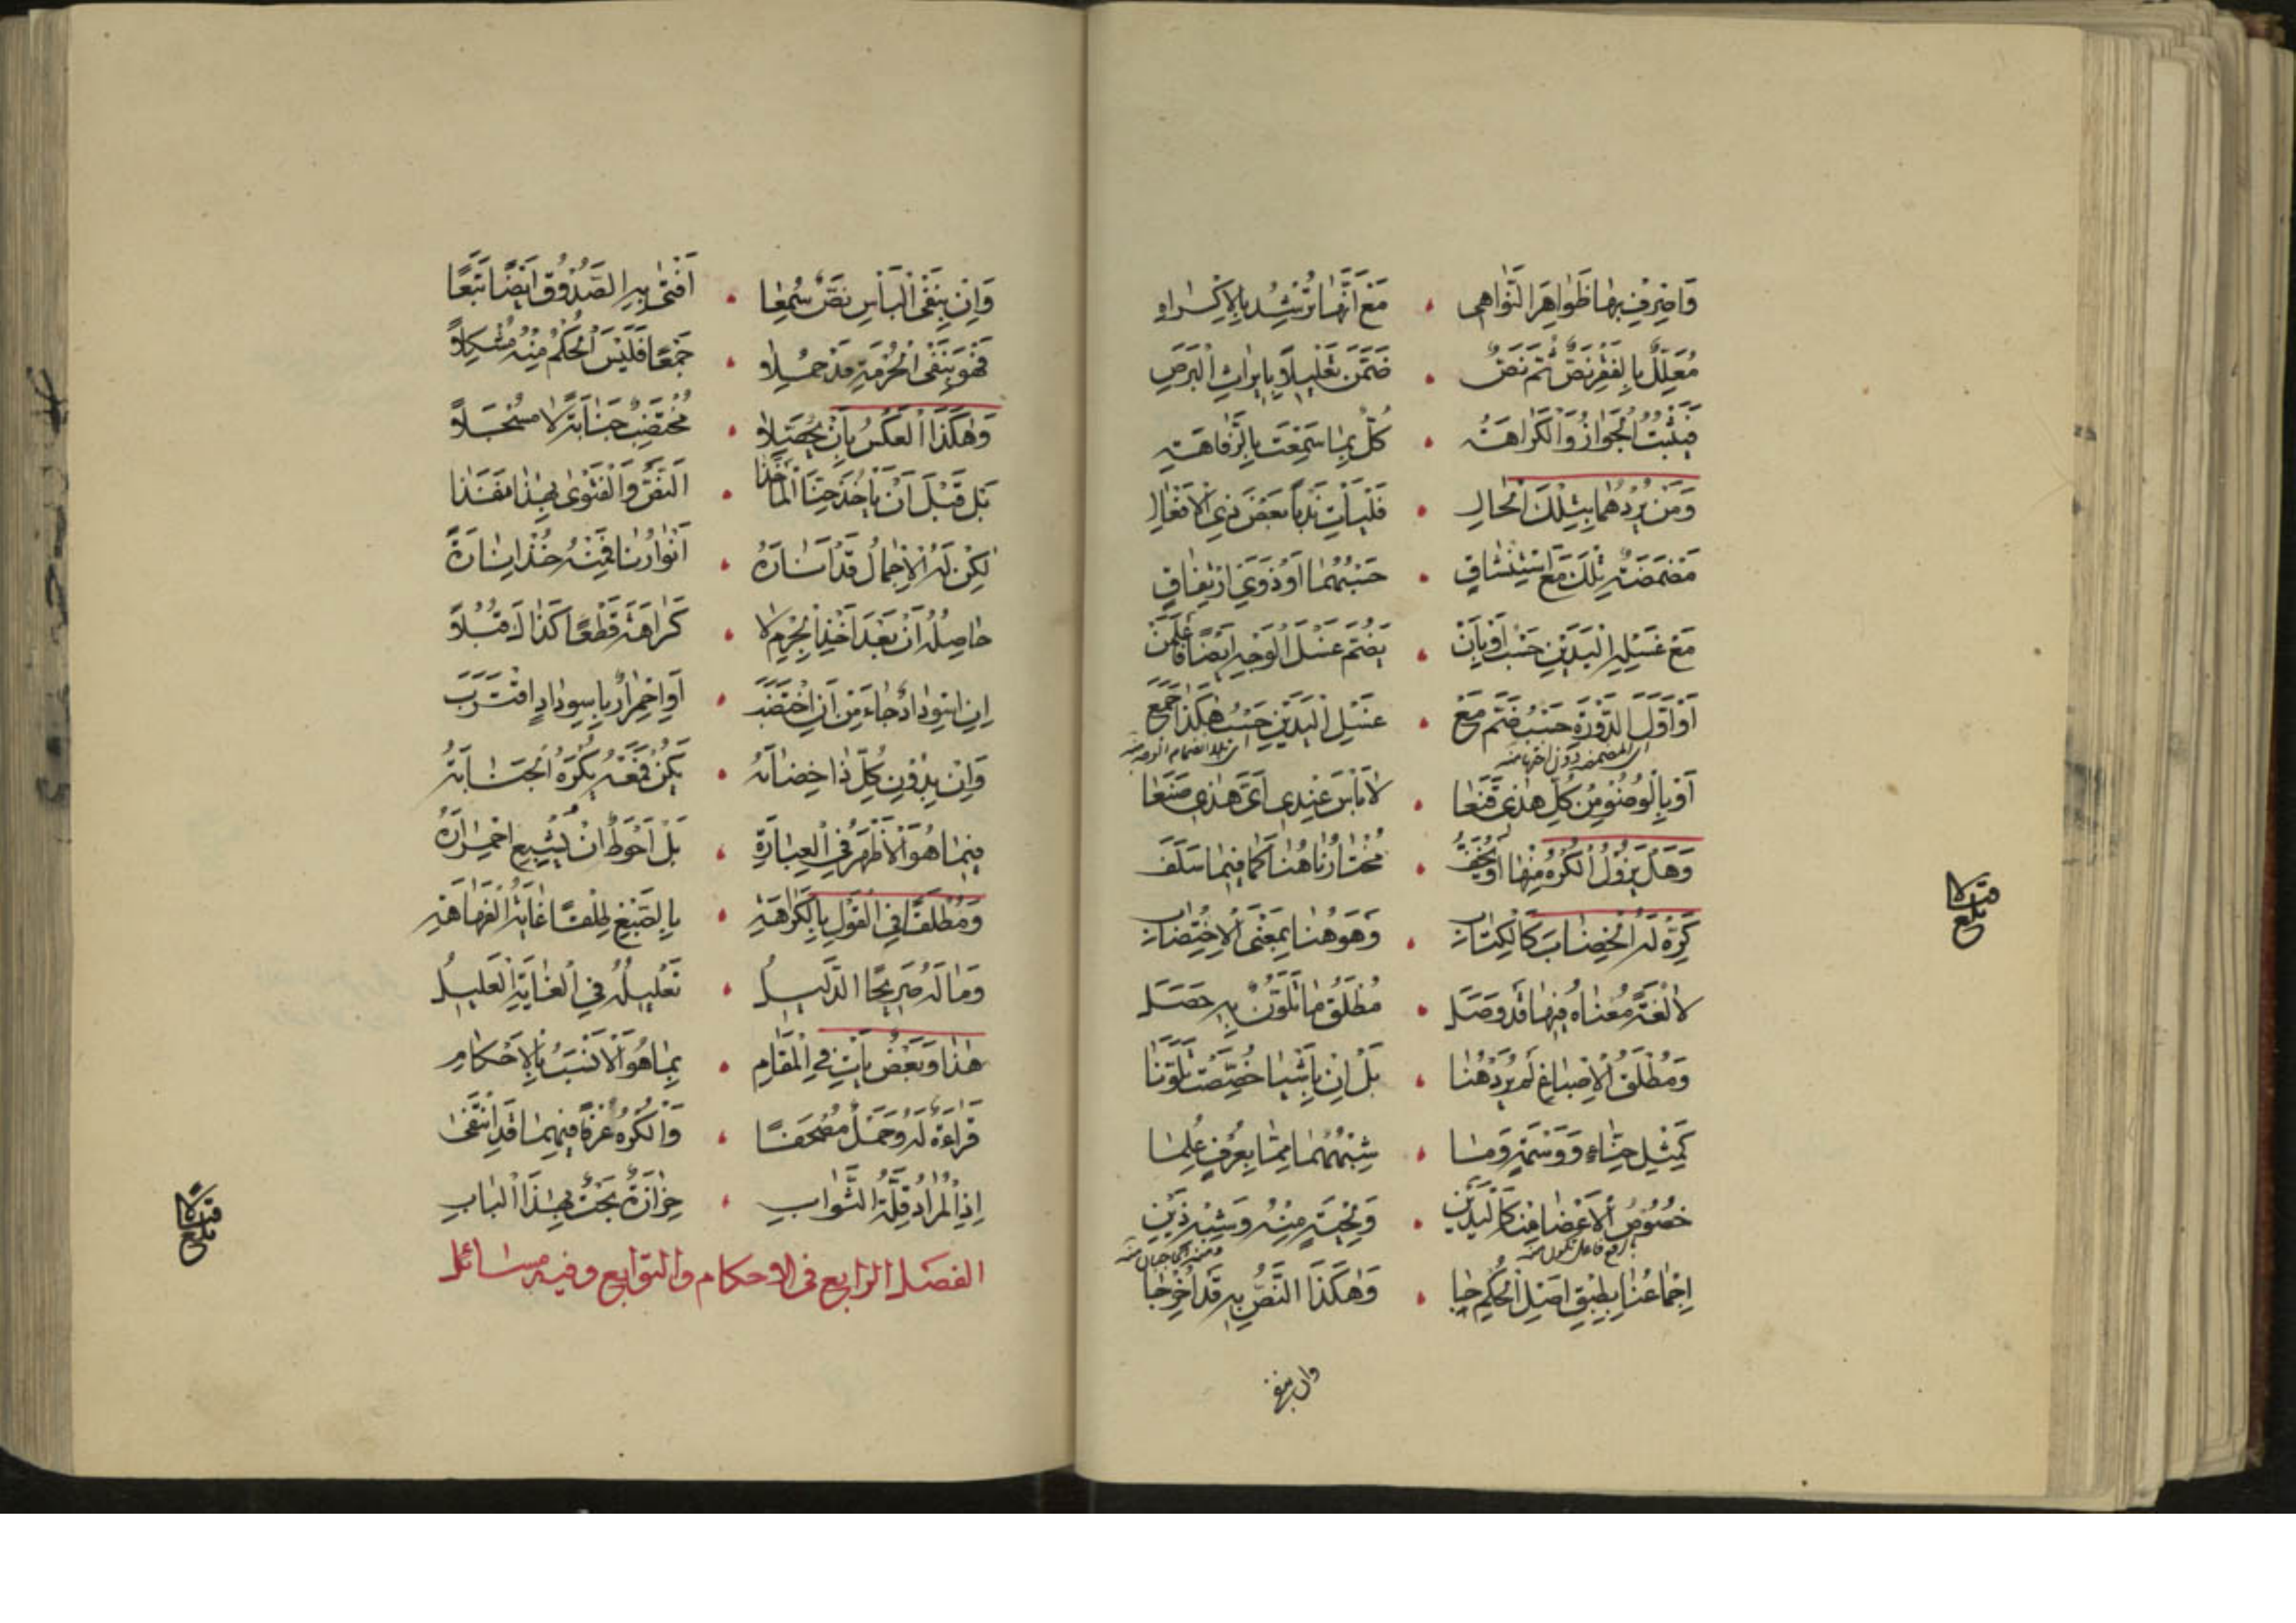 فَاصْرِفْ بِهَا ظَوَاهِرَ النَّوَاهِي • مَعَ أَنَّهَا تُرْشِدُ بِالْإِكْرَاهِ
مُعَلَّلٌ بِالْفَقْرِ نَصٌّ ثُمَّ نَصّْ • ضُمِّنَ تَعْلِيلًا بِإِيرَاثِ الْبَرَصِ
فَيَثْبُتُ الْجَوَازُ وَالْكَرَاهَةُ • كُلٌّ بِمَا سَمِعْتَ بِالرَّفَاهَةِ
وَمَنْ يُرِدْهُمَا بِتِلْكَ الْحَالِ • فَلْيَأْتِ نَدْبًا بَعْضَ ذِي الْأَفْعَالِ
مَضْمَضَةٍ تِلْكَ مَعَ اسْتِنْشَاقِ • حَسْبُهُمَا أَوْ ذَوَيْ ارْتِفَاقِ
مَعَ غَسْلِهِ الْيَدَيْنِ حَسْبُ أَوْ بِأَنْ • يَضُمَّ غَسْلَ الْوَجْهِ أَيْضًا فَاعْلَمَنْ
أَوْ أَوَّلُ الدَّوْرَةِ حَسْبُ ضُمَّ مَعْ • غَسْلِ الْيَدَيْنِ حَسْبُ هٰكَذَا جَمَعْ
أي المضمضة دون أخرها منه
أي بلا انضمام الوجه منه
أَوْ بِالْوُضُوءِ مِنْ كُلِّ هٰذِي قَنَعَا • لَا بَأْسَ عِنْدِي أَيَّ هٰذِي صَنَعَا
وَهَلْ يَزُولُ الْكُرْهُ مِنْهَا أَوْ يُخَفّْ • مُخْتَارُنَا هُنَا كَمَا فِيمَا سَلَفَ
كُرِّهَ لَهُ الْخِضَابَ كَالْكِتَابِ • وَهَوَ هُنَا بِمَعْنَى الْاِخْتِضَابِ
لَا لُغَةً مَعْنَاهُ فِيهَا قَدْ وَصَلَ • مُطْلَقُ مَا تَلَوُّنٌ بِهِ حَصَلَ
وَمُطْلَقُ الْاِصْبَاغِ لَمْ يُرَدْ هُنَا • بَلْ إِنْ بِأَشْيَا خُصِّصَتْ تَلَوَّنَا
كَمِثْلِ حِنَّاءٍ وَوَسْمَةٍ وَمَا • شِبْهُهُمَا مِمَّا بِعُرْفٍ عُلِمَا
خُصُوصُ الْأَعْضَا مِنَّا كَالْيَدَيْنِ • وَلِحْيَةٍ مِنْهُ وَشِبْهِ ذَيْنِ
بالرفع فاعل تلون منه
إِجْمَاعُنَا بِطِبْقِ أَصْلِ الْحُكْمِ جَا • وَهٰكَذَا النَّصُّ بِهِ قَدْ أُخْرِجَا
وان بنفي
قبلا
بلغ
وَإِنْ بِنَفْيِ الْبَأْسِ نَصٌّ سُمِعَا • أَفْتَى بِهِ الصَّدُوقُ أَيْضًا تَبَعًا
فَهْوَ بِنَفْيِ الْحُرْمَةِ قَدْ حُمِلَا • جَمْعًا فَلَيْسَ الْحُكْمُ مِنْهُ مُشْكِلًا
وَهٰكَذَا الْعَكْسُ بِأَنْ يُحَصِّلَا • مُخْتَضِبٌ جَنَابَةً لَا مُسْجَلًا
بَلْ قَبْلَ أَنْ يَأْخُذَ حِنَّا الْمَأْخَذَا • النَّصُّ وَالْفَتْوَى بِهٰذَا نَفَذَا
لٰكِنْ لَهُ الْإِجْمَالُ قَدْ أَشَارَهُ • أَنْوَارُنَا فَمِنْهُ خُذْ إِشَارَةً
حَاصِلُهُ أَنْ بَعْدَ أَخْذِ الْجِرْمِ لَا • كَرَاهَةَ قَطْعًا كَذَاكَ قُبُلًا
إِنِ اسْوِدَادٌ جَاءَ مَنْ أَنِ اخْتَضَبَ • أَوِ احْمِرَارٌ بِاسْوِدَادٍ اقْتَرَبَ
وَإِنْ بِدُونِ كُلِّ ذَا خِضَابُهُ • يَكُنْ فَمَعْهُ يُكْرَهُ الْجَنَابَةُ
فِيمَا هُوَ الْأَظْهَرُ فِي الْعِبَارَةِ • بَلْ أَحْوَطٌ أَنْ يُشْبِعَ احْمِرَارَهُ
وَمُطْلَقًا فِي الْقَوْلِ بِالْكَرَاهَةِ • بِالصَّبْغِ طِلْقًا غَايَةُ الْفَرَاهَةِ
وَمَا لَهُ صَرِيحًا الدَّلِيلُ • تَعْلِيلُهُ فِي الْغَايَةِ الْعَلِيلُ
هٰذَا وَبَعْضٌ يَأْتِ فِي الْمَقَامِ • بِمَا هُوَ الْأَنْسَبُ بِالْأَحْكَامِ
قِرَاءَةٌ لَهُ وَحَمْلٌ مُصْحَفًا • وَالْكُرْهُ عُرْفًا فِيهِمَا قَدِ انْتَفَى
إِذِ الْمُرَادُ قِلَّةُ الثَّوَابِ • حَزَازَةٌ بَحْتٌ بِهٰذَا الْبَابِ
الفصل الرابع في الاحكام والتوابع وفيه مسائل
قبلا
بلغ